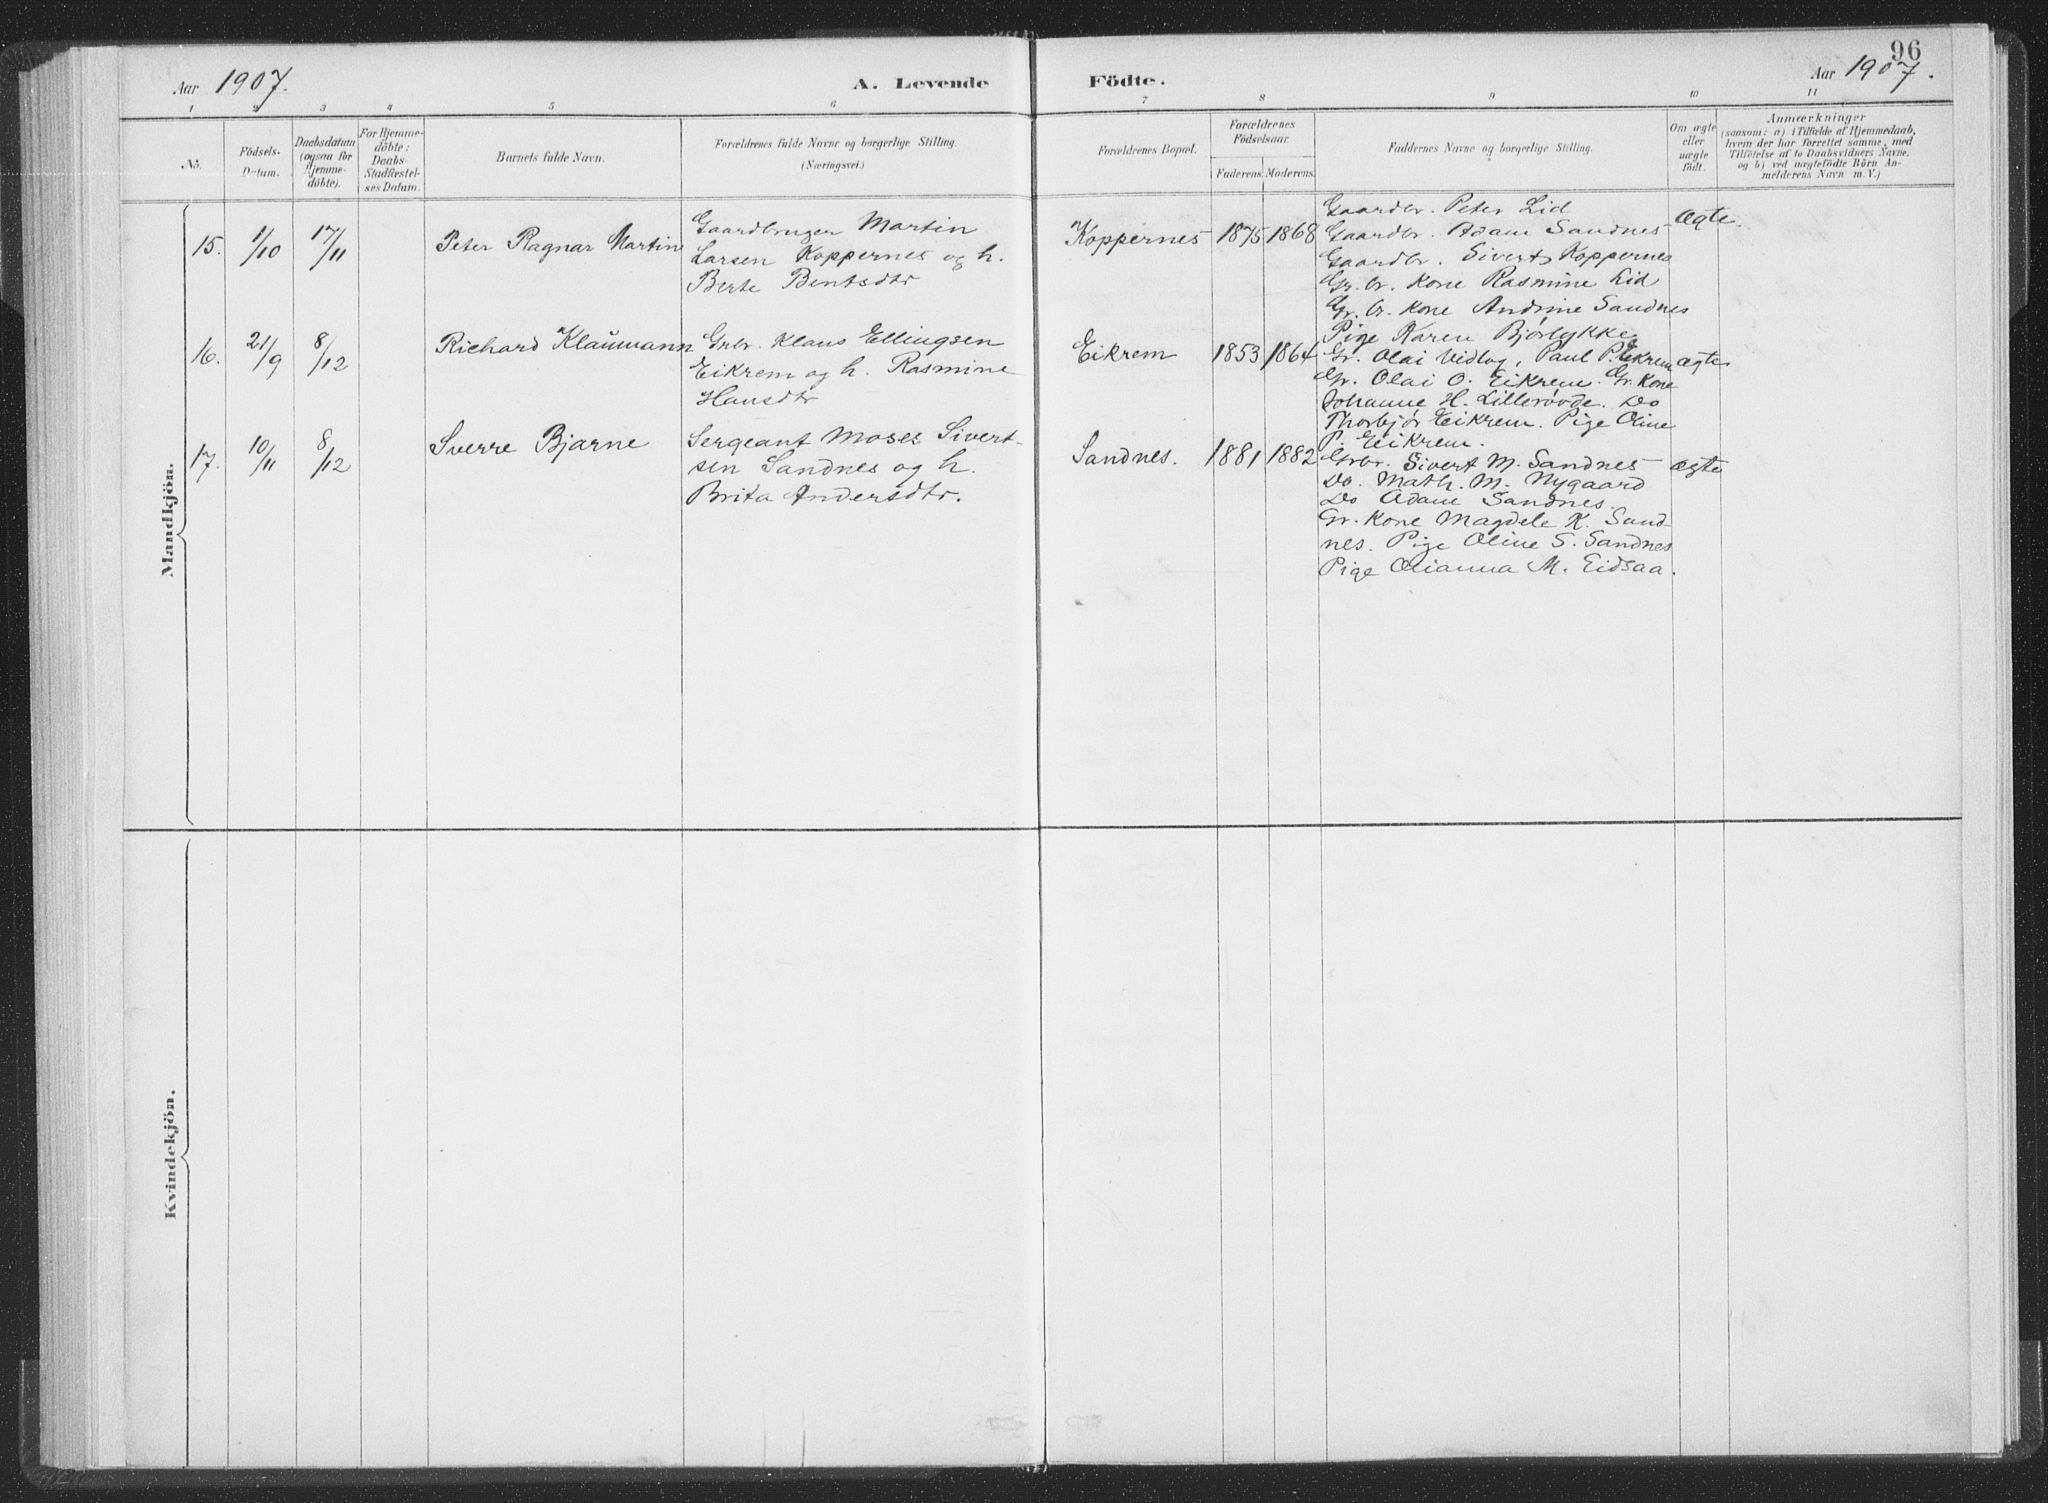 96
Aar 1907.
A. Levende Födte.
Aar 1907.
1 2 3 4 5 6 7 8 9 10 11
No.
Födsels-
Datum.
Daabsdatum
(ogsaa for
Hjemme-
döbte).
For Hjemme-
döbte:
Daabs-
Stadfæstel-
ses Datum.
Barnets fulde Navn.
Forældrenes fulde Navne og borgerlige Stilling.
(Næringsvei.)
Forældrenes Bopæl.
Forældrenes
Födselsaar.
Faderens. Moderens.
Faddernes Navne og borgerlige Stilling.
Om ægte
eller
uægte
födt.
Anmærkninger
(saasom: a) i Tilfælde af Hjemmedaab,
hvem der har forrettet samme, med
Tilföielse af to Daabsvidners Navne,
og b) ved uægtefödte Börn An-
melderens Navn m. V.)
Mandkjön.
15. 1/10 17/11 Peter Ragnar Martin
Gaardbruger Martin
Larsen Koppernes og h.
Berte Bentsdtr
Koppernes 1875 1868
Gaardbr. Peter Lid
Gaardbr. Adam Sandnes
Gaardbr. Sivert Koppernes
Gr. br. Kone Rasmine Lid
Gr. br. Kone Andrine Sandnes
Pige Karen Bjørlykke
ægte.
16. 21/9 8/12 Richard Klaumann
Grbr. Klaus Ellingsen
Eikrem og h. Rasmine
Hansdtr
Eikrem 1853 1864
Gr. Olai Vedlog, Paul P. Eikrem
Gr. Olai O. Eikrem. Gr. Kone
Johanne H. Lillerøvde. Do
Thorbjør Eikrem. Pige Oline
P. Eikrem.
ægte
17. 10/11 8/12 Sverre Bjarne
Sergeant Moses Sivert-
sen Sandnes og h.
Brita Andersdtr.
Sandnes. 1881 1882
Grbr. Sivert M. Sandnes
Do. Math. M. Nygaard
Do Adam Sandnes.
Gr. Kone Magdele K. Sand-
nes. Pige Oline S. Sandnes
Pige Olianna M. Eidsaa.
ægte
Kvindekjön.